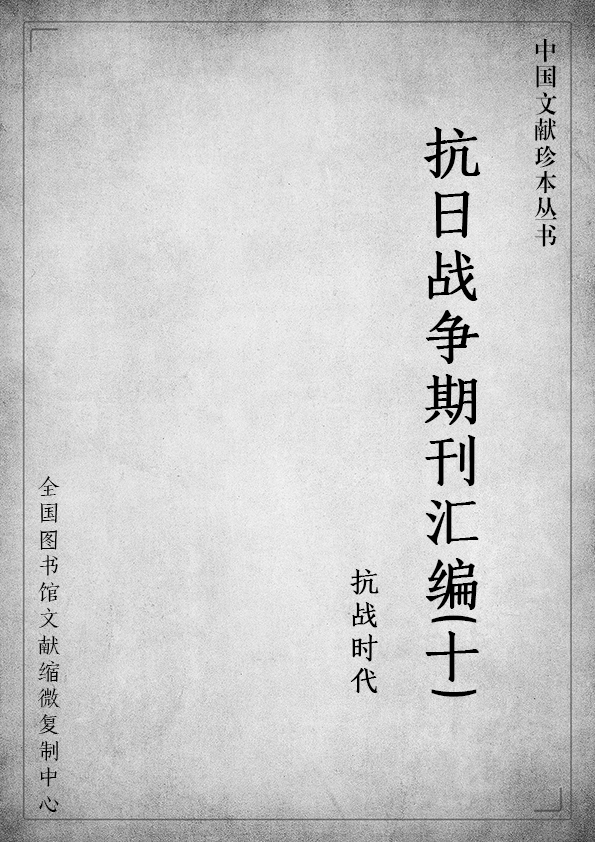 中国文献珍本丛书
抗日战争期刊汇编(十)
抗战时代
全国图书馆文献缩微复制中心